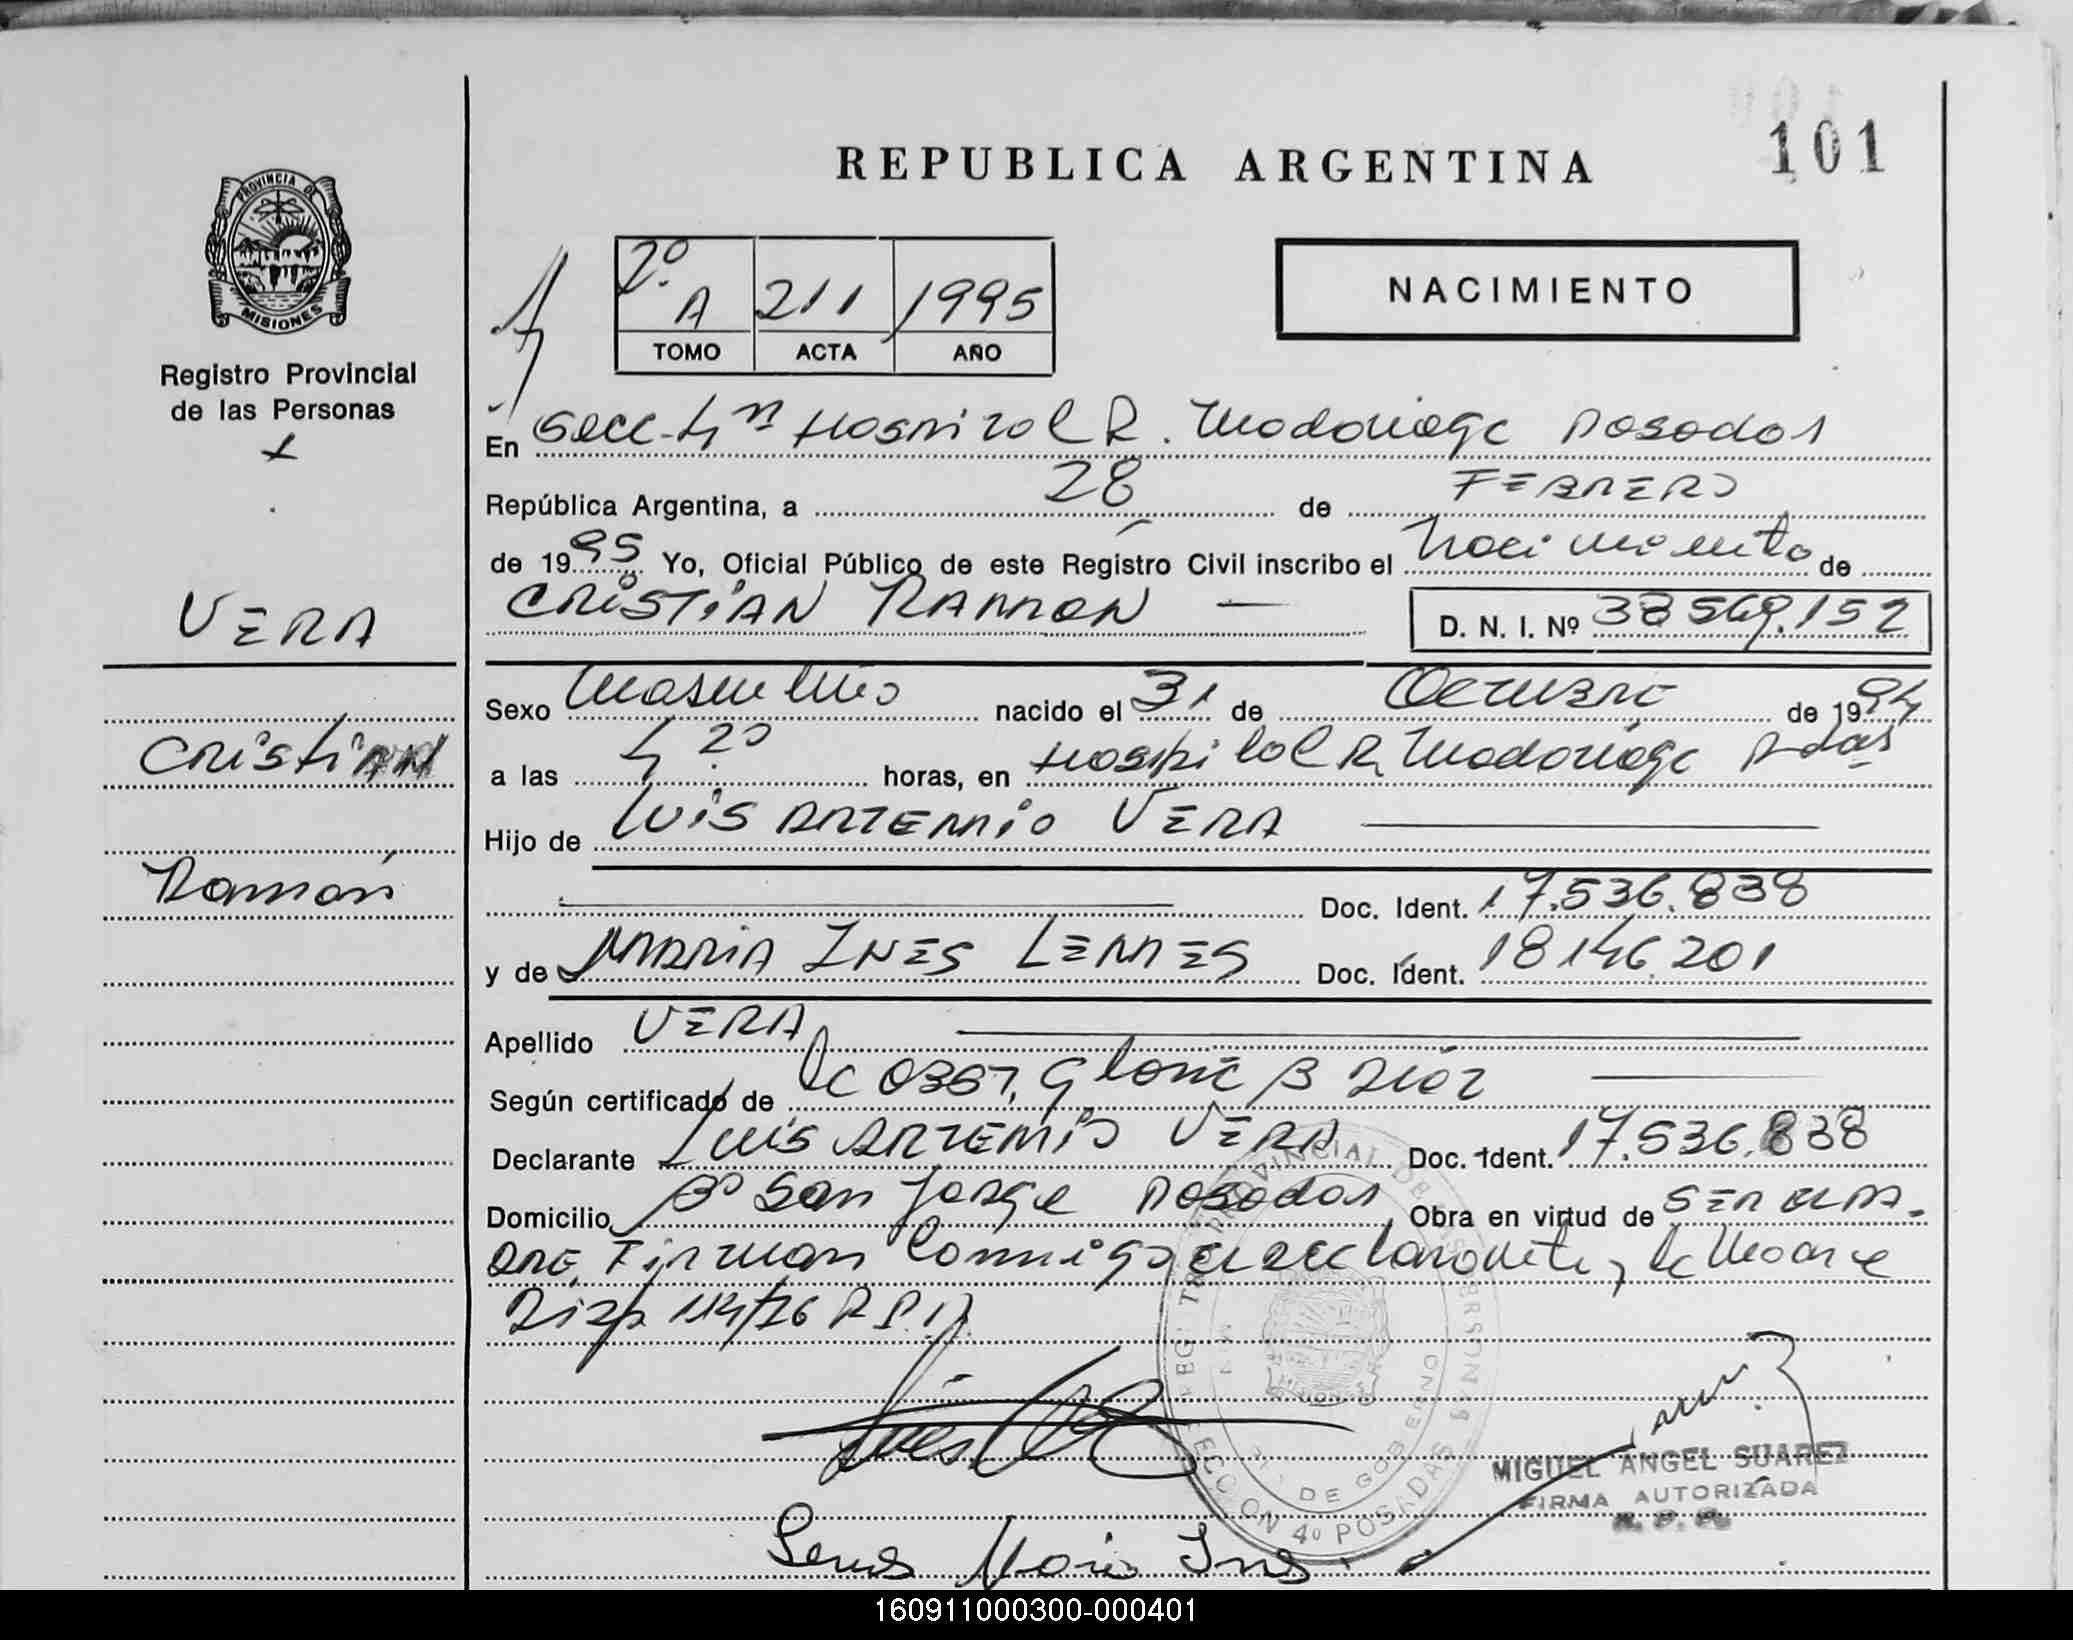 101
REPUBLICA ARGENTINA
PROVINCIA DE
MISIONES
Registro Provincial
de las Personas
2º A 211 1995
TOMO ACTA AÑO
NACIMIENTO
En Secc. 4ª Hospital R. Madariaga Posadas
República Argentina, a 28 de FEBRERO
de 1995 Yo, Oficial Público de este Registro Civil inscribo el Nacimiento de
CRISTIAN RAMON D. N. I. Nº 38 569.152
VERA
Cristian
Ramón
Sexo Masculino nacido el 31 de Octubre de 1994
a las 4 20 horas, en Hospital R. Madariaga Pdas
Hijo de LUIS ARTEMIO VERA
Doc. Ident. 17.536.838
y de MARIA INES LEMES Doc. Ident. 18 146.201
Apellido VERA
Según certificado de la OBST,
Declarante LUIS ARTEMIO VERA Doc. Ident. 17.536.838
Domicilio Bº San Jorge Posadas Obra en virtud de SER EL PA-
DRE. Firman Conmigo el declarante y la Madre
Disp 114/76 R.P.P.
MIGUEL ANGEL SUAREZ
FIRMA AUTORIZADA
R. P. P.
REGISTRO PROVINCIAL DE LAS PERSONAS
SECCION 4º POSADAS
M. DE GOBIERNO
Lemes Maria Ines
160911000300-000401